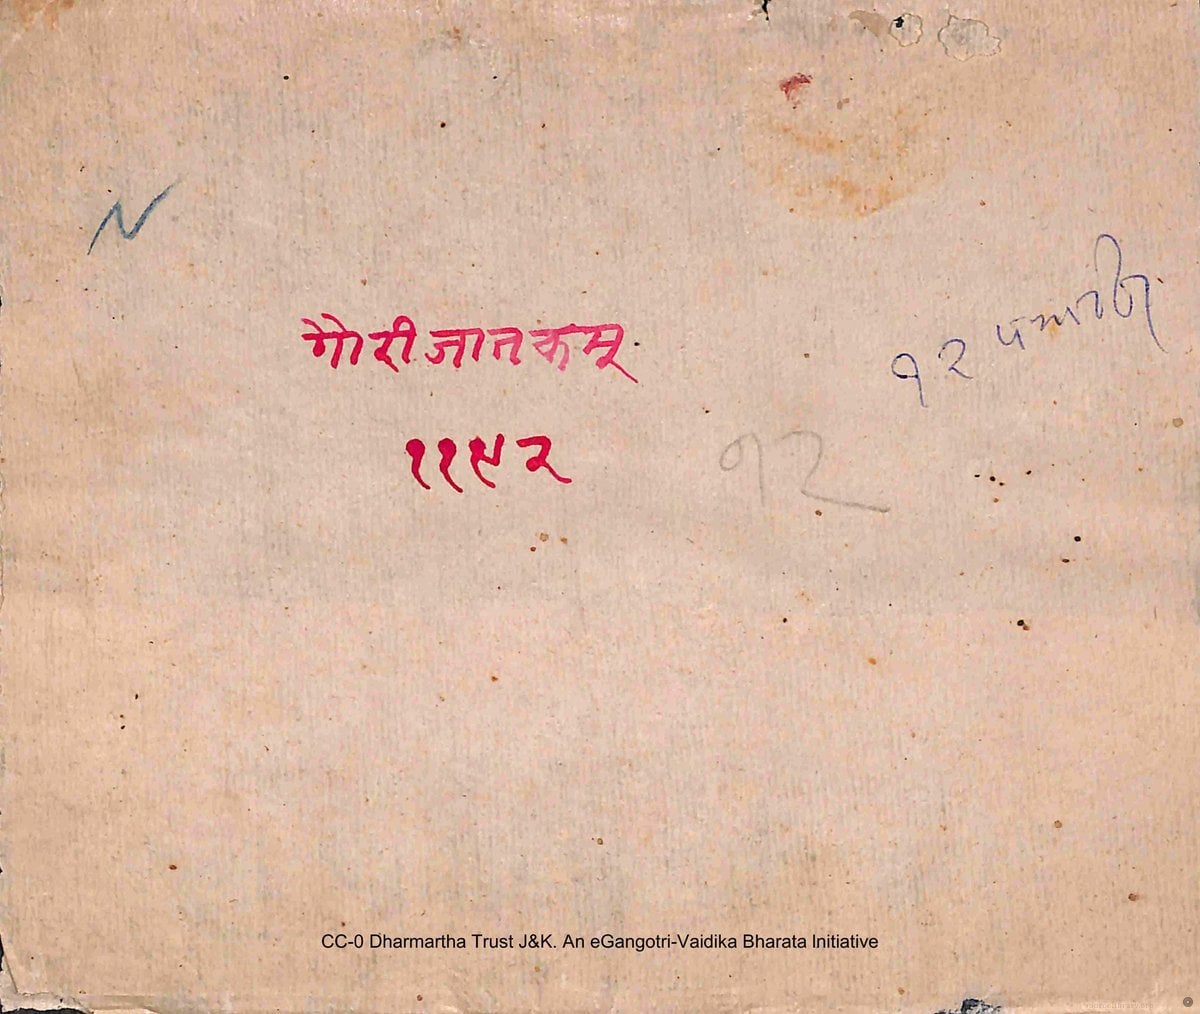 गौरीजातकम्
११९२
१२
१२
CC-0 Dharmartha Trust J&K. An eGangotri-Vaidika Bharata Initiative